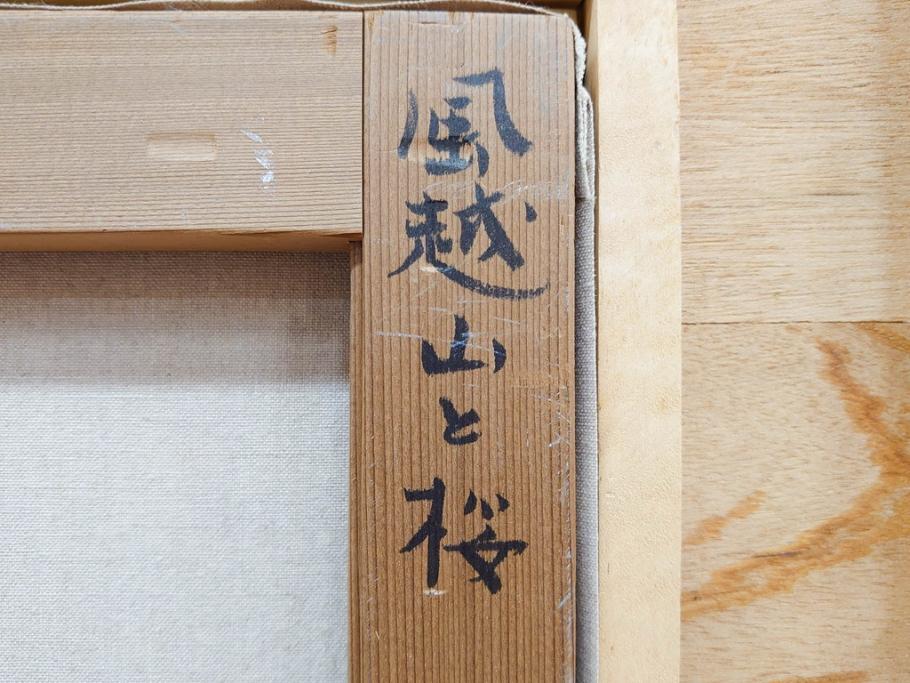 風越山と桜